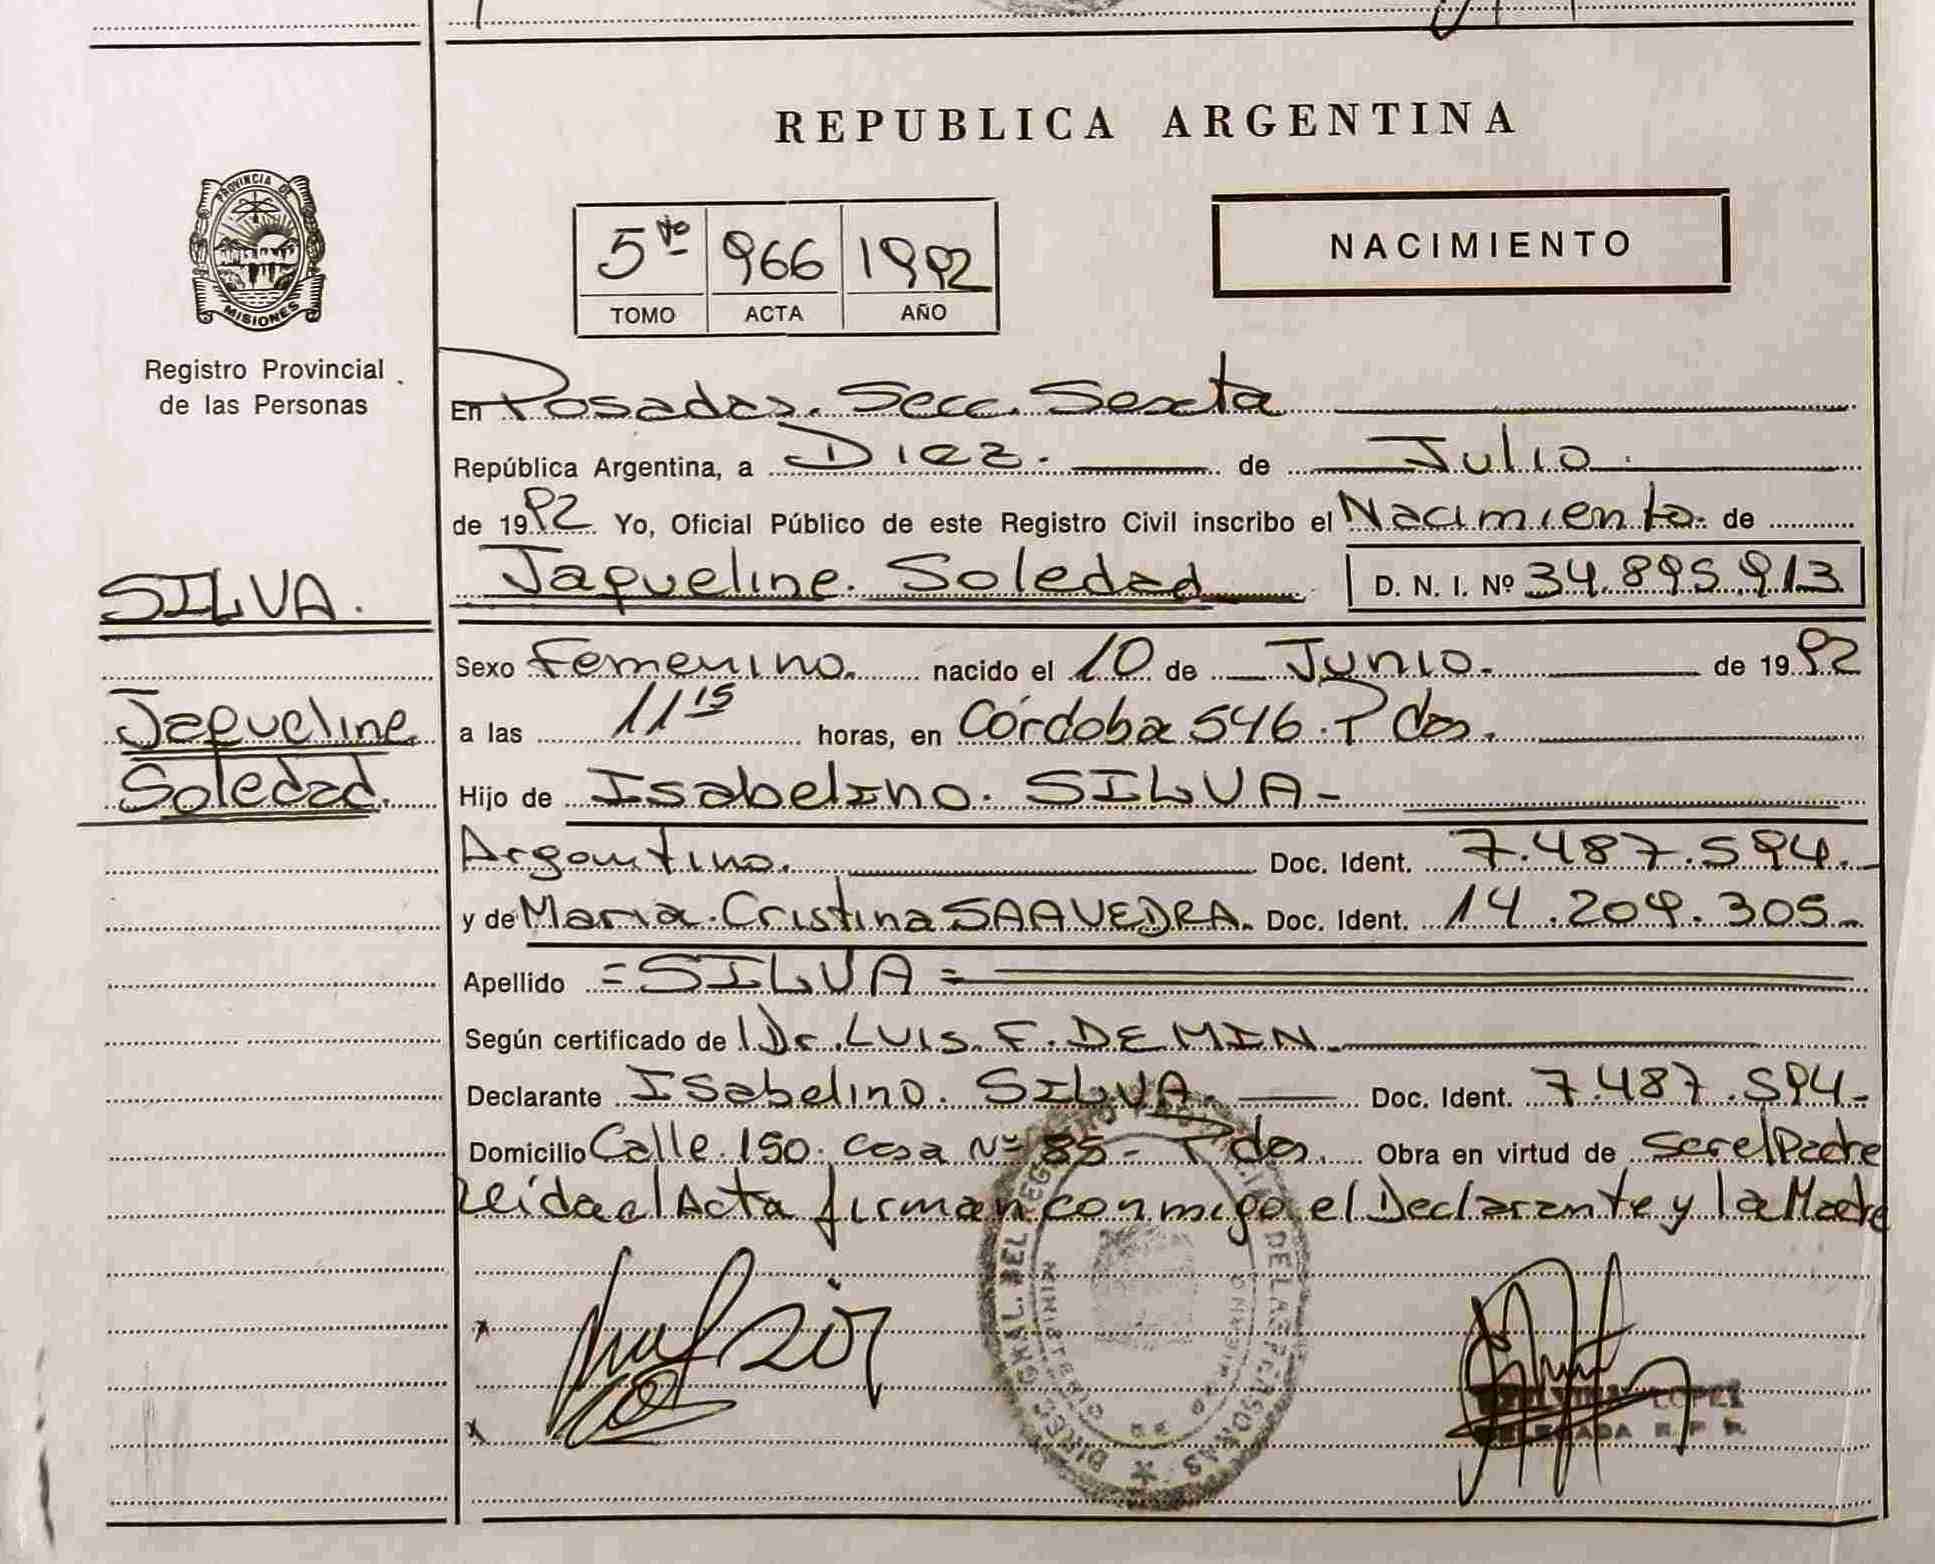 REPUBLICA ARGENTINA
PROVINCIA DE
MISIONES
Registro Provincial
de las Personas
5to 966 1992
TOMO ACTA AÑO
NACIMIENTO
En Posadas. Secc. Sexta
República Argentina, a Diez. de Julio.
de 1992. Yo, Oficial Público de este Registro Civil inscribo el Nacimiento. de
SILVA.
Jaqueline. Soledad D. N. I. Nº 34.895.913
Sexo Femenino. nacido el 10 de Junio. de 1992
Jaqueline
Soledad.
a las 11 15 horas, en Córdoba 546. Pdas.
Hijo de Isabelino. SILVA-
Argentino. Doc. Ident. 7.487.594.-
y de Maria. Cristina SAAVEDRA. Doc. Ident. 14.209.305-
Apellido =SILVA=
Según certificado de Dr. LUIS. F. DEMIN.
Declarante Isabelino. SILVA. Doc. Ident. 7.487.594.-
Domicilio Calle. 150. casa Nº 85- Pdas. Obra en virtud de ser el Padre
Leída el Acta firman conmigo el Declarante y la Madre
LOPEZ
DELEGADA R. P. P.